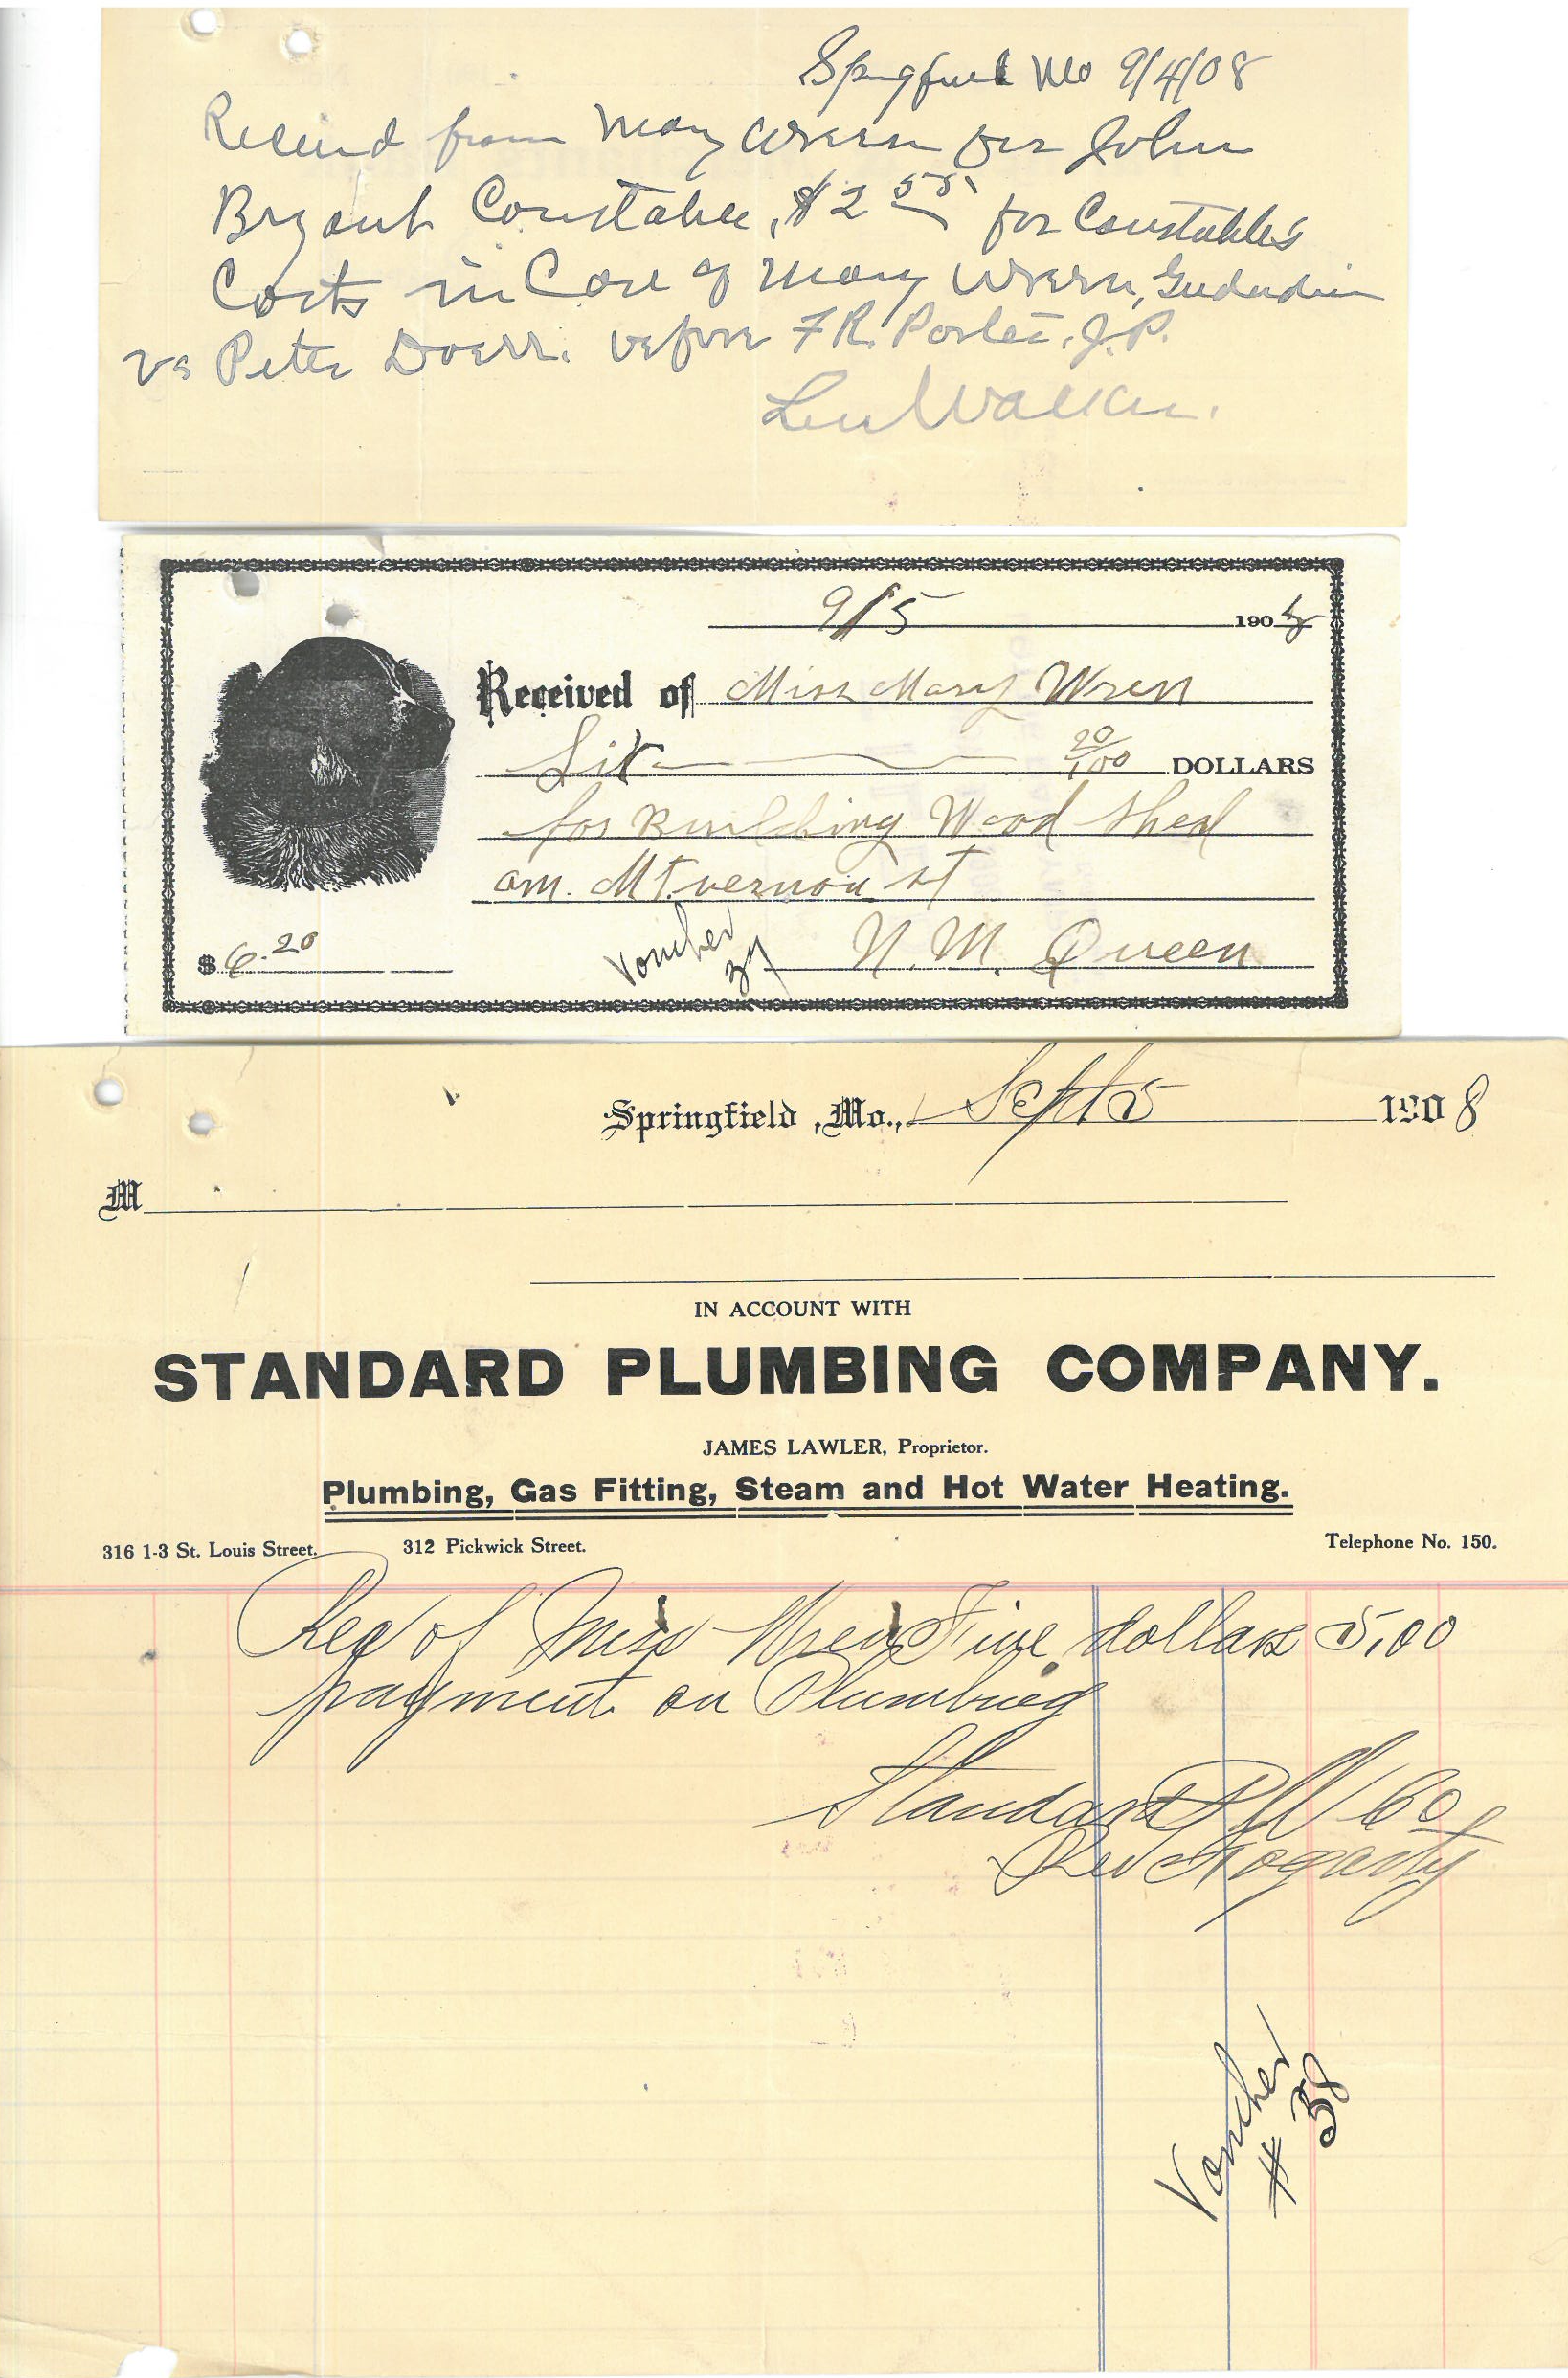 Springfield Mo 9/4/08
Received from Mary Wrenn for John
Bryant Constable, $2 55 for Constables
Costs in Case of Mary Wrenn,
vs Peter Doerr. before F R. Porter, J.P.
Len Walker.
9/5 1908
Received of Miss Mary Wren
Six 20/100 DOLLARS
for Building Wood Shed
on. Mt. vernon st
$6.20 Voucher 37 N. M. Queen
Springfield, Mo., Sept 5 1908
M
IN ACCOUNT WITH
STANDARD PLUMBING COMPANY.
JAMES LAWLER, Proprietor.
Plumbing, Gas Fitting, Steam and Hot Water Heating.
316 1-3 St. Louis Street. 312 Pickwick Street. Telephone No. 150.
Rec of Miss Wren Five dollars 5.00
payment on Plumbing
Standard Pl Co
Fogarty
Voucher
# 38